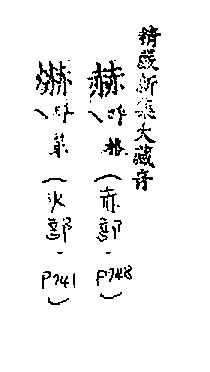 精嚴新集大藏音
赫 呼格(赤部-P748)
爀 呼(火部-P741)